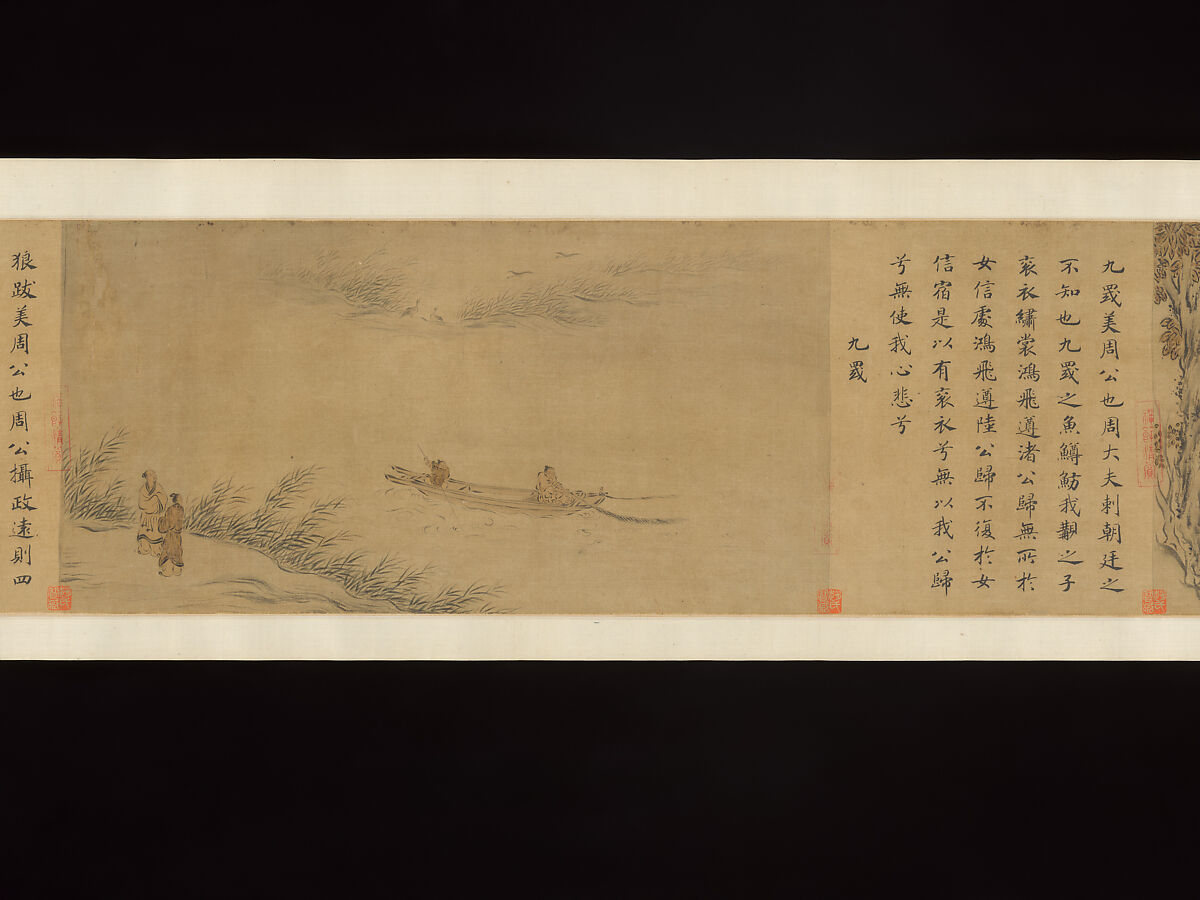 九罭美周公也周大夫刺朝廷之
不知也九罭之魚鱒魴我覯之子
袞衣繡裳鴻飛遵渚公歸無所於
女信處鴻飛遵陸公歸不復於女
信宿是以有袞衣兮無以我公歸
兮無使我心悲兮
九罭
狼跋美周公也周公攝政遠則四